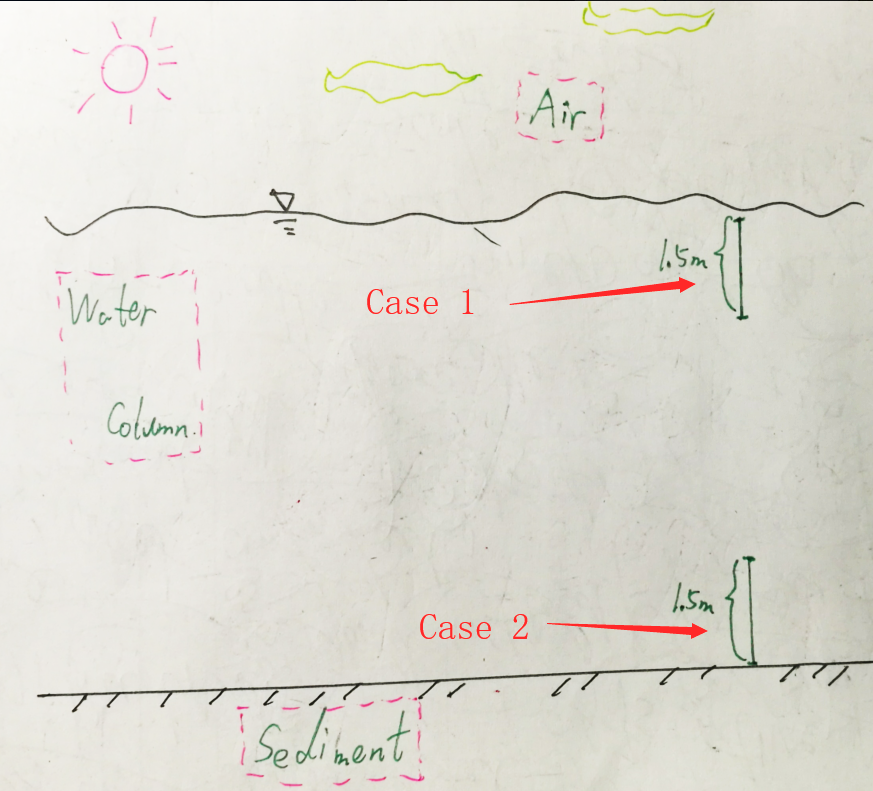 Air
1.5m
Case 1
Water
Column.
1.5m
Case 2
Sediment